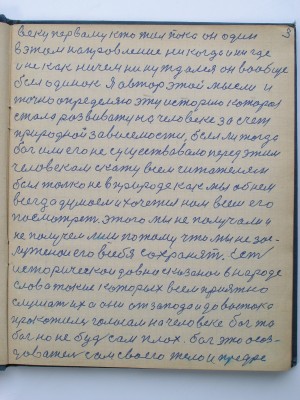 3
веку первому кто жил пока он один
в этом направление никогда и нигде
и не как ничем ни нуждался он вообще
был одинок Я автор этой мысли и
точно определяю эту историю которая
стала развивату на человеке за счет
природной зависемости, был ли тогда
бог или его не существовало перед этим
человекам скажу всем читателям
был только не в природе как мы об нем
всегда думаем и хочется нам всем его
посмотреть этого мы не получали и
не получем мы и потому что мы не зас-
лужено его в себя сохранят. Ест
исторически давно сказаноя в народе
слова такие которых всем приятно
слушат их а они от запода и до востока
прокотили голосам на человеке бог то
бог но не буд сам плох. бог это осоз-
доватем сам своего тело и предре